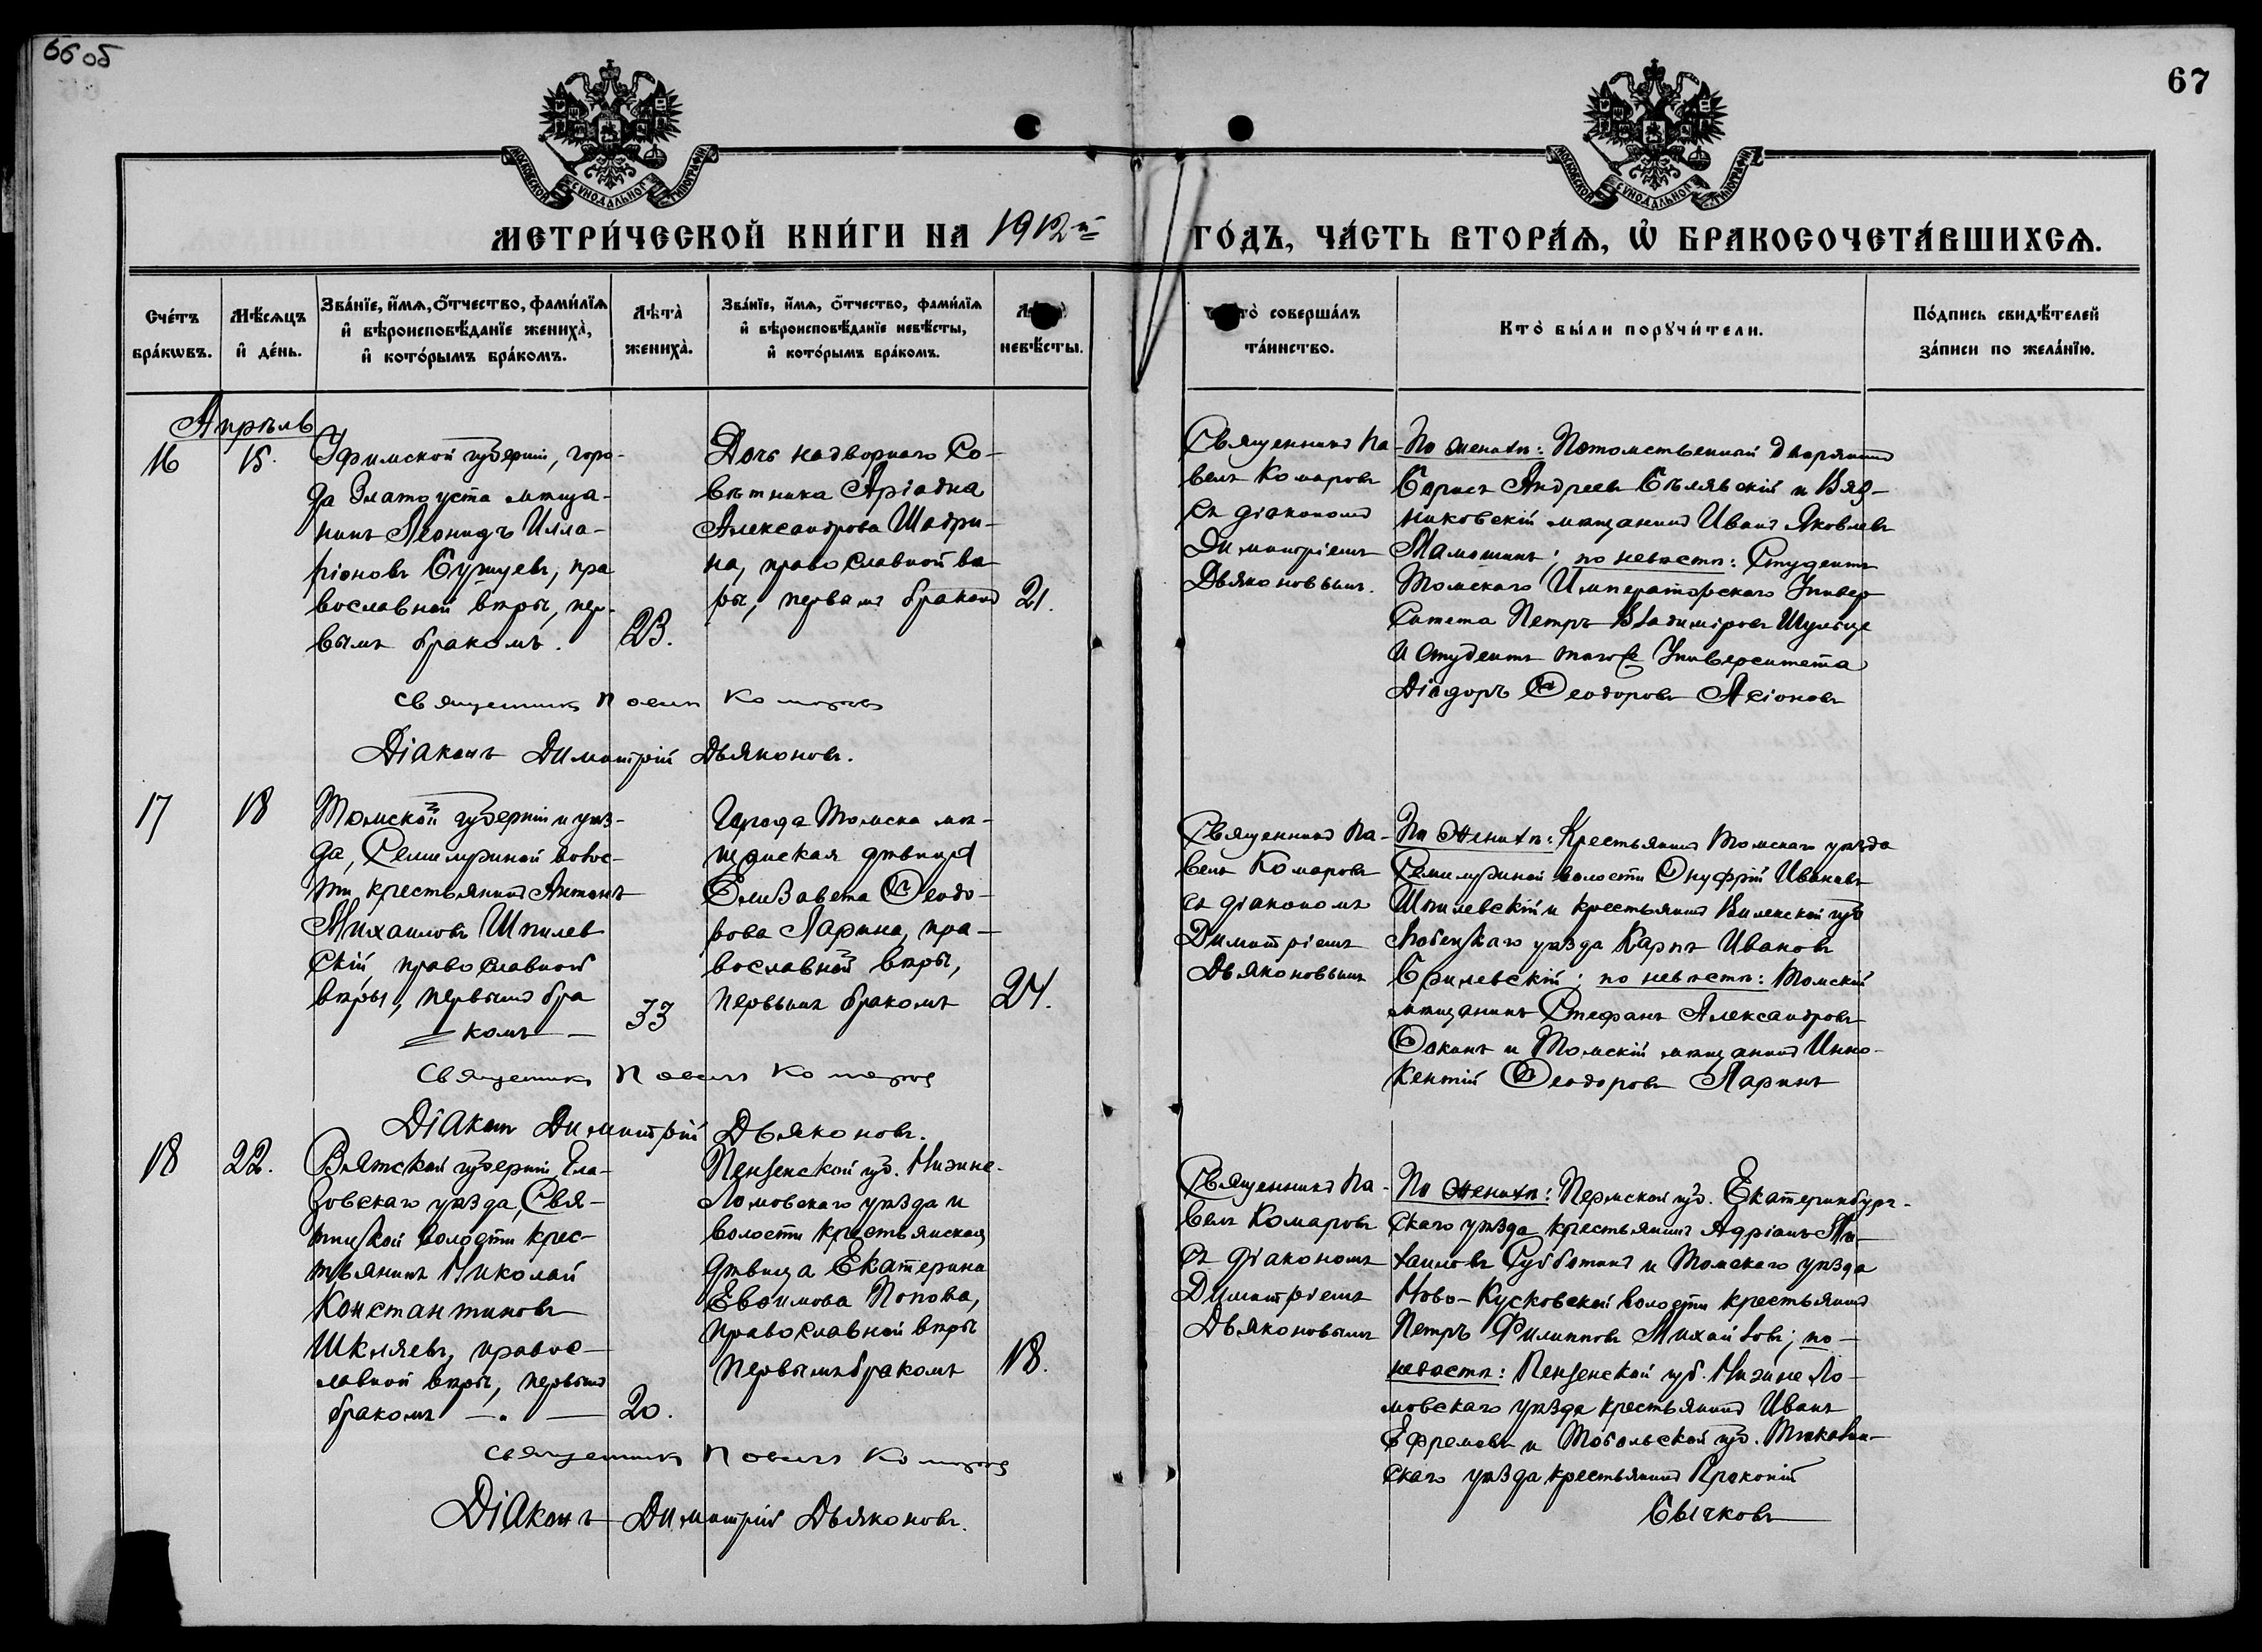 66 об
67
МОСКОВСКОЙ СУНОДАЛЬНОЙ ТИПОГРАФІИ
МОСКОВСКОЙ СУНОДАЛЬНОЙ ТИПОГРАФІИ
МЕТРИ́ЧЕСКОЙ КНИ́ГИ НА 1912й
ГО́ДЪ, ЧА́СТЬ ВТОРА́Ѧ, Ѡ҆ БРАКОСОЧЕТА́ВШИХСѦ.
Сче́тъ бра́кѡвъ.
Мѣ́сѧцъ и҆ де́нь.
Зва́нїе, и҆́мѧ, ѻ҆́тчество, фами́лїѧ и҆ вѣроисповѣ́данїе жениха̀, и҆ кото́рымъ бра́комъ.
Лѣта̀ жениха̀.
Зва́нїе, и҆́мѧ, ѻ҆́тчество, фами́лїѧ и҆ вѣроисповѣ́данїе невѣ́сты, и҆ кото́рымъ бра́комъ.
невѣ́сты.
соверша́лъ та́инство.
Кто̀ бы́ли порꙋчи́тели.
По́дпись свидѣ́телей за́писи по жела́нїю.
Апрѣль
16
15.
Уфимской губерніи, горо-
да Златоуста мѣща-
нинъ Леонидъ Илла-
ріоновъ, пра
вославной вѣры, пер-
вымъ бракомъ.
23.
Дочь надворнаго Со-
вѣтника Аріадна
Александрова Шадри-
на, православной вѣ
ры, первымъ бракомъ
21.
Священникъ Па-
велъ Комаровъ
съ діакономъ
Димитріемъ
Дьяконовымъ.
По женихѣ: Потомственный дворянинъ
Борисъ Андреевъ Бѣлявскій и Вяз-
никовскій мѣщанинъ Иванъ Яковлевъ
Мамошинъ; по невѣстѣ: Студентъ
Томскаго Императорскаго Универ
ситета Петръ Владиміровъ Шульце
и студентъ того же Университета
Діодоръ Ѳеодоровъ Аксіоновъ
Священникъ Павелъ Комаровъ
Діаконъ Димитрій Дьяконовъ.
17
18
Томской губерніи и уѣз-
да, Семилужной волос-
ти крестьянинъ Антонъ
Михаиловъ Шпилев
скій, православной
вѣры, первымъ бра
комъ
33
Города Томска мѣ-
щанская дѣвица
Елизавета Ѳеодо-
рова Ларина, пра-
вославной вѣры,
первымъ бракомъ
24.
Священникъ Па-
велъ Комаровъ
съ діакономъ
Димитріемъ
Дьяконовымъ
По женихѣ: Крестьянинъ Томскаго уѣзда
Семилужной волости Онуфрій Ивановъ
Шпилевскій и крестьянинъ Виленской губ
уѣзда Карпъ Ивановъ
по невѣстѣ: Томскій
мѣщанинъ Стефанъ Александровъ
Ѳокинъ и Томскій мѣщанинъ Инно-
кентій Ѳеодоровъ Ларинъ
Священникъ Павелъ Комаровъ
Діаконъ Димитрій Дьяконовъ.
18
22.
Вятской губерніи, Гла-
зовскаго уѣзда, Свя-
тицкой волости крес-
тьянинъ Николай
Константиновъ
Шкляевъ, правос-
лавной вѣры, первымъ
бракомъ
20.
Пензенской губ. Нижне-
Ломовскаго уѣзда и
волости крестьянская
дѣвица Екатерина
Евѳимова Попова,
православной вѣры
первымъ бракомъ
18.
Священникъ Па-
велъ Комаровъ
съ діакономъ
Димитріемъ
Дьяконовымъ
По женихѣ: Пермской губ. Екатеринбург-
скаго уѣзда крестьянинъ Адріанъ Ми-
хаиловъ Субботинъ и Томскаго уѣзда
Ново-Кусковской волости крестьянинъ
Петръ Филипповъ Михайловъ; по-
невѣстѣ: Пензенской губ. Нижне Ло-
мовскаго уѣзда крестьянинъ Иванъ
Ефремовъ и Тобольской губ. Тюкалин-
скаго уѣзда крестьянинъ Прокопій
Бычковъ
Священникъ Павелъ Комаровъ
Діаконъ Димитрій Дьяконовъ.